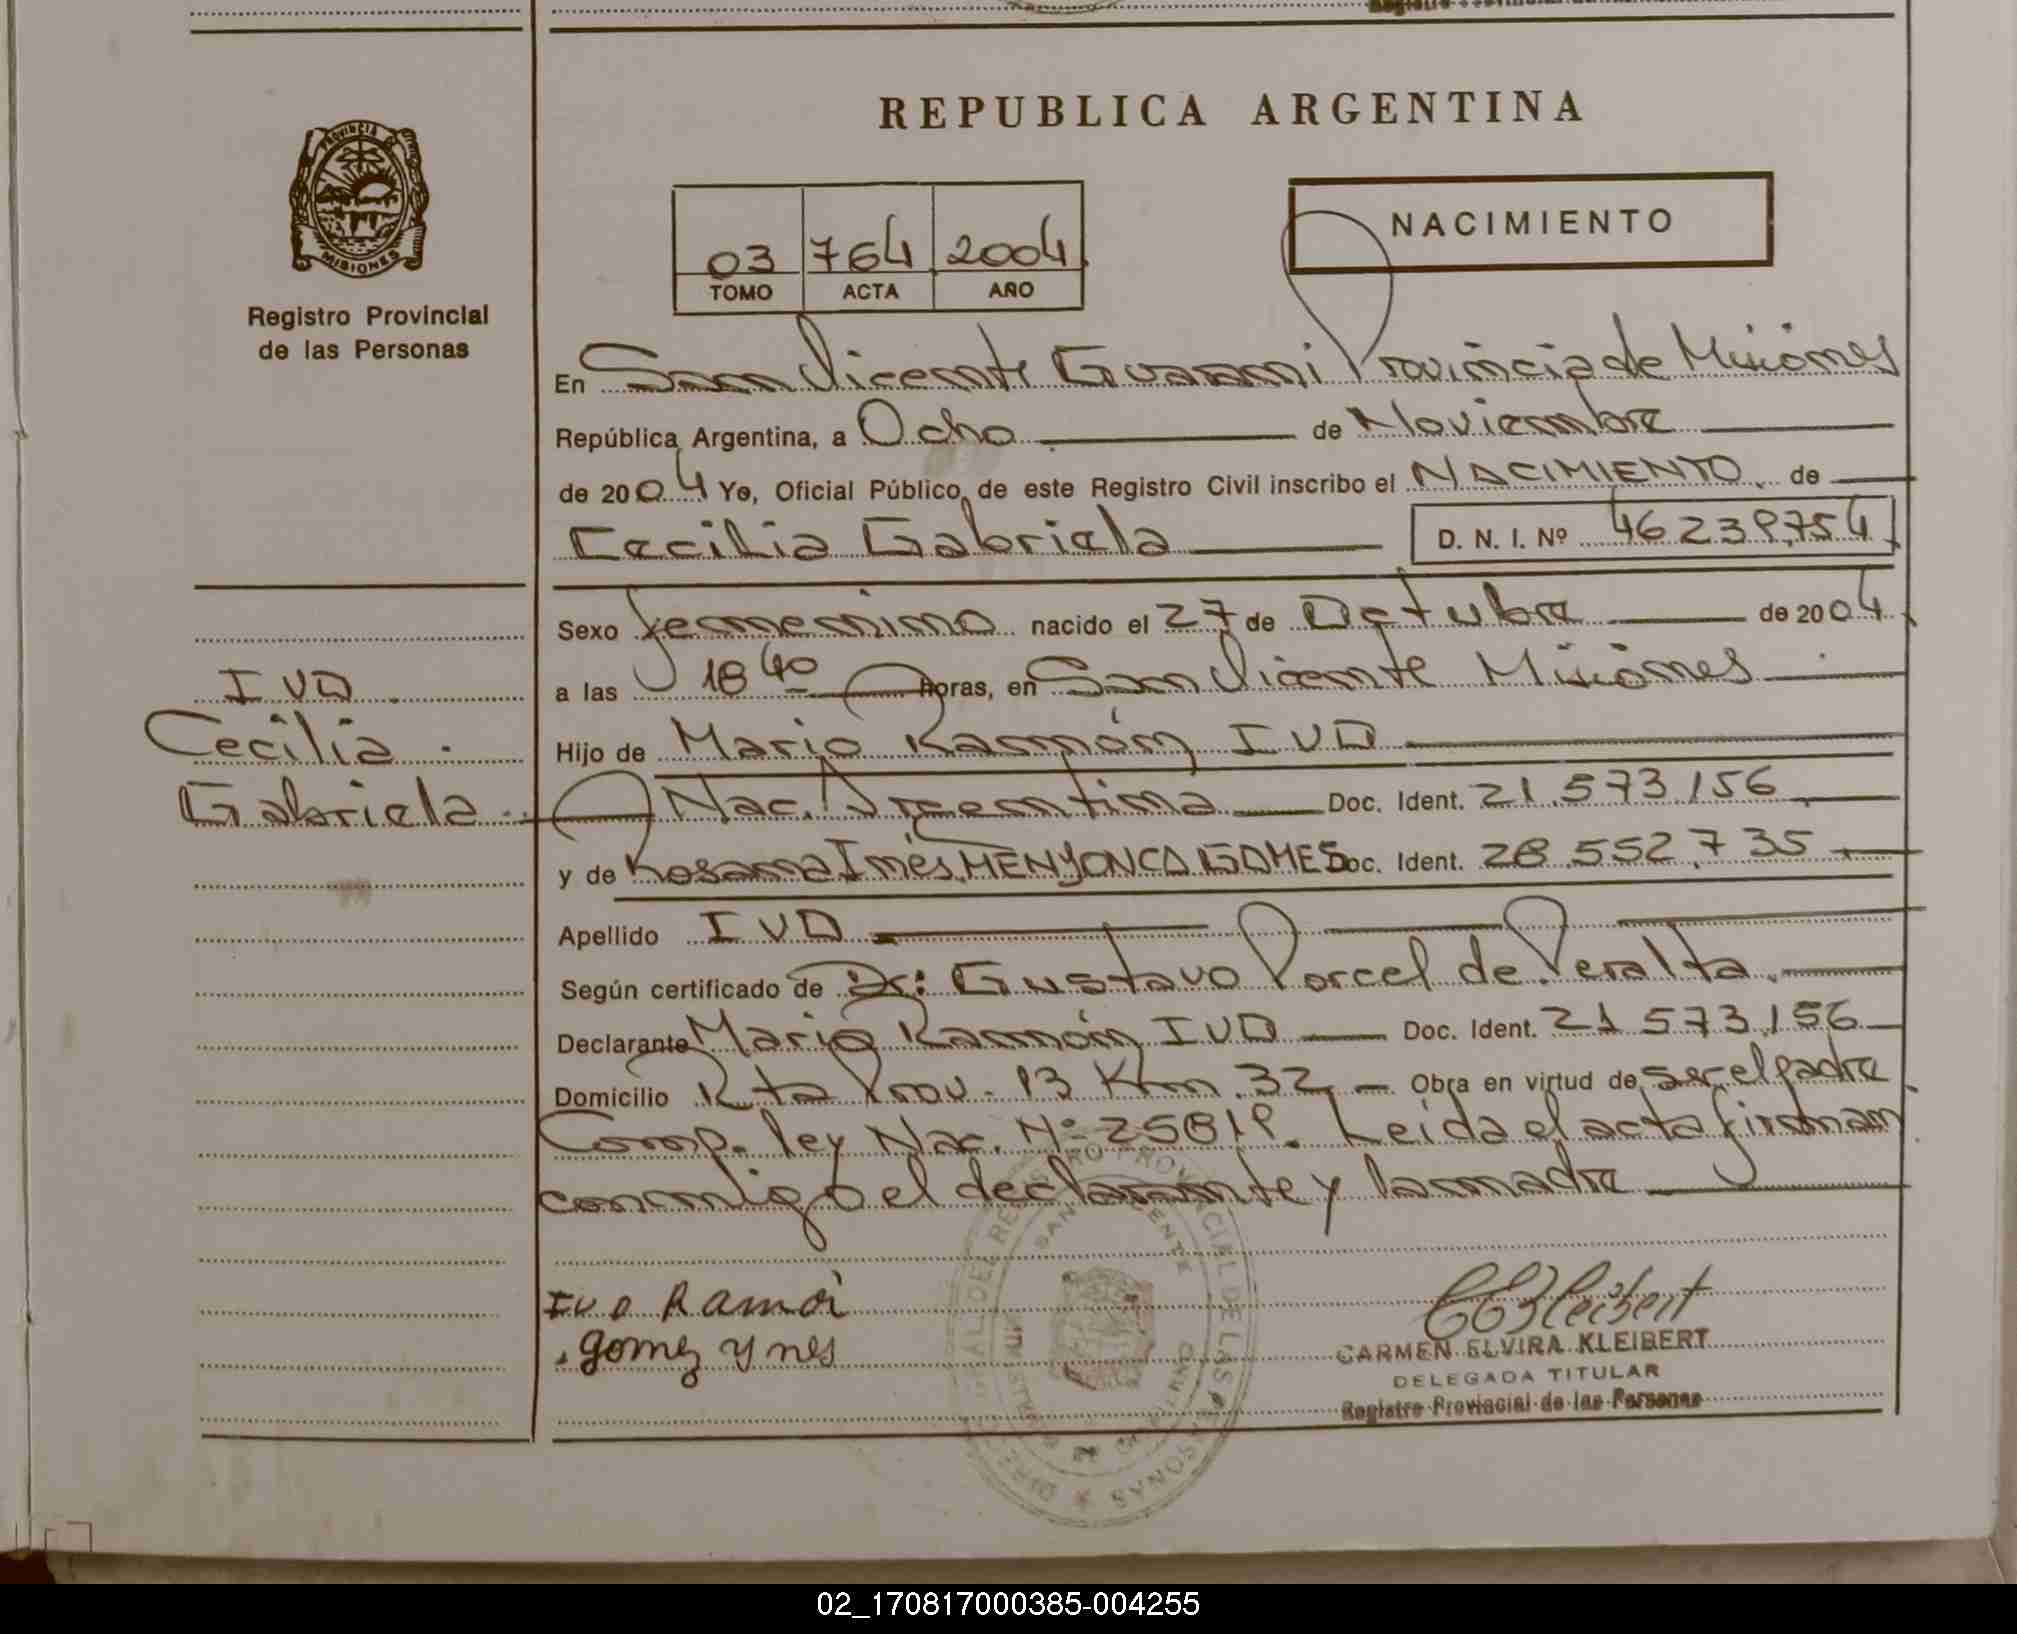 REPUBLICA ARGENTINA
PROVINCIA DE
MISIONES
Registro Provincial
de las Personas
NACIMIENTO
03 764 2004
TOMO ACTA AÑO
En San Vicente Guarani Provincia de Misiones
República Argentina, a Ocho de Noviembre
de 2004 Yo, Oficial Público, de este Registro Civil inscribo el NACIMIENTO de
Cecilia Gabriela D. N. I. Nº 46239754
Sexo femenino nacido el 27 de Octubre de 2004
a las 18 40 horas, en San Vicente Misiones
Hijo de Mario Ramón IVD
Nac. Argentina Doc. Ident. 21.573.156
y de Rosana Inés MENYONCA GOMES Doc. Ident. 28.552.735
Apellido IVD
Según certificado de Dr: Gustavo Porcel de Peralta.
Declarante Mario Ramón IVD Doc. Ident. 21 573.156
Domicilio Rta Prov. 13 Km 32 Obra en virtud de ser el padre
Comp. ley Nac. Nº 25819. Leida el acta firman
conmigo el declarante y la madre
IVD
Cecilia
Gabriela
IVD Ramon
gomez ynes
CARMEN ELVIRA KLEIBERT
DELEGADA TITULAR
Registro Provincial de las Personas
02_170817000385-004255